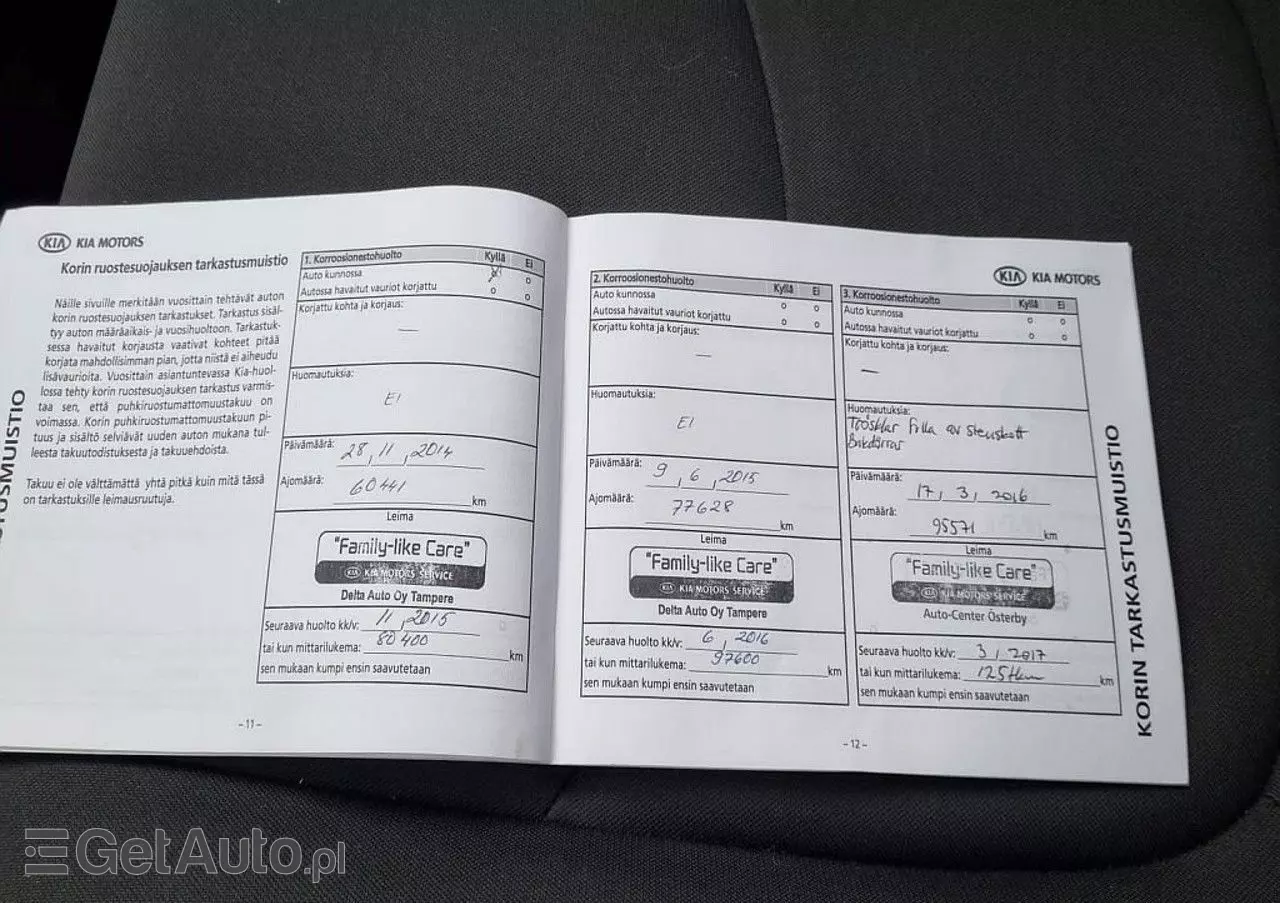 KIA KIA MOTORS
Korin ruostesuojauksen tarkastusmuistio
Näille sivuille merkitään vuosittain tehtävät auton
korin ruostesuojauksen tarkastukset. Tarkastus sisäl-
tyy auton määräaikais- ja vuosihuoltoon. Tarkastuk-
sessa havaitut korjausta vaativat kohteet pitää
korjata mahdollisimman pian, jotta niistä ei aiheudu
lisävaurioita. Vuosittain asiantuntevassa Kia-huol-
lossa tehty korin ruostesuojauksen tarkastus varmis-
taa sen, että puhkiruostumattomuustakuu on
voimassa. Korin puhkiruostumattomuustakuun pi-
tuus ja sisältö selviävät uuden auton mukana tul-
leesta takuutodistuksesta ja takuuehdoista.
Takuu ei ole välttämättä yhtä pitkä kuin mitä tässä
on tarkastuksille leimausruutuja.
1. Korroosionestohuolto Kyllä Ei
Auto kunnossa
Autossa havaitut vauriot korjattu
Korjattu kohta ja korjaus:
—
Huomautuksia:
EI
Päivämäärä: 28, 11, 2014
Ajomäärä: 60441 km
Leima
"Family-like Care"
KIA KIA MOTORS SERVICE
Delta Auto Oy Tampere
Seuraava huolto kk/v: 11, 2015
tai kun mittarilukema: 80 400 km
sen mukaan kumpi ensin saavutetaan
-11-
2. Korroosionestohuolto Kyllä Ei
Auto kunnossa
Autossa havaitut vauriot korjattu
Korjattu kohta ja korjaus:
—
Huomautuksia:
EI
Päivämäärä: 9, 6, 2015
Ajomäärä: 77628 km
Leima
"Family-like Care"
KIA KIA MOTORS SERVICE
Delta Auto Oy Tampere
Seuraava huolto kk/v: 6, 2016
tai kun mittarilukema: 97600 km
sen mukaan kumpi ensin saavutetaan
KIA KIA MOTORS
3. Korroosionestohuolto Kyllä Ei
Auto kunnossa
Autossa havaitut vauriot korjattu
Korjattu kohta ja korjaus:
—
Huomautuksia:
Trösklar av Stenskott
Bakdörrar
Päivämäärä: 17, 3, 2016
Ajomäärä: 95571 km
Leima
"Family-like Care"
KIA KIA MOTORS SERVICE
Auto-Center Österby
Seuraava huolto kk/v: 3, 2017
tai kun mittarilukema: 125tkm km
sen mukaan kumpi ensin saavutetaan
-12-
KORIN TARKASTUSMUISTIO
GetAuto.pl